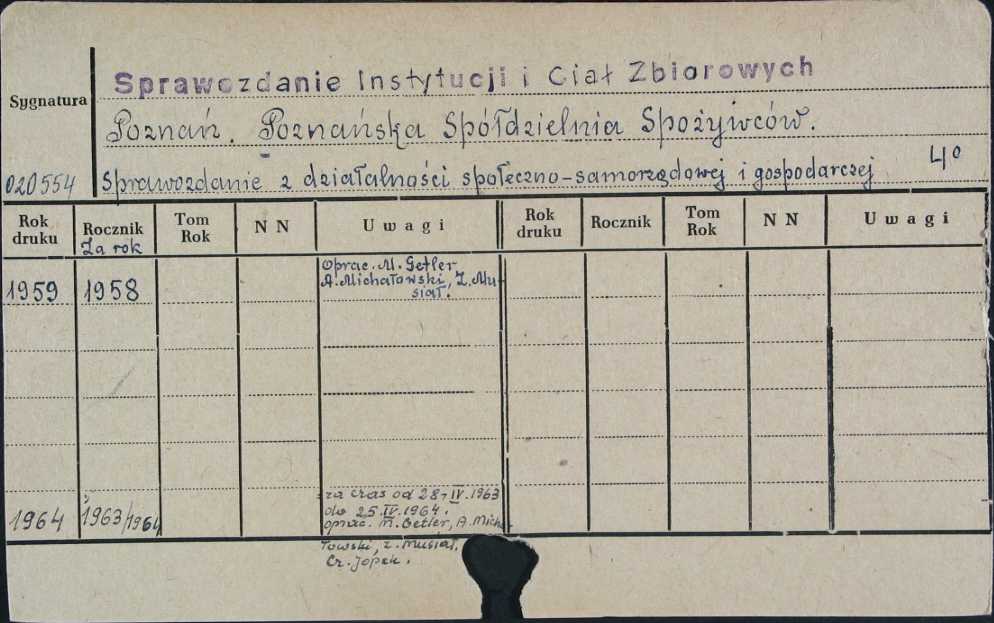 Sprawozdanie Instytucji i Ciał Zbiorowych
Sygnatura
Poznań. Poznańska Spółdzielnia Spożywców.
4°
020554 Sprawozdanie z działalności społeczno-samorządowej i gospodarczej
Rok druku Rocznik Za rok Tom Rok N N Uwagi Rok druku Rocznik Tom Rok N N Uwagi
1959 1958 Oprac. M. Getler
A. Michałowski, Z. Mu-
siał.
1964 1963/1964 za czas od 28-IV.1963
do 25.IV.1964.
oprac. M. Getler, A. Micha-
łowski, Z. Musiał.
Cz. Jopek.